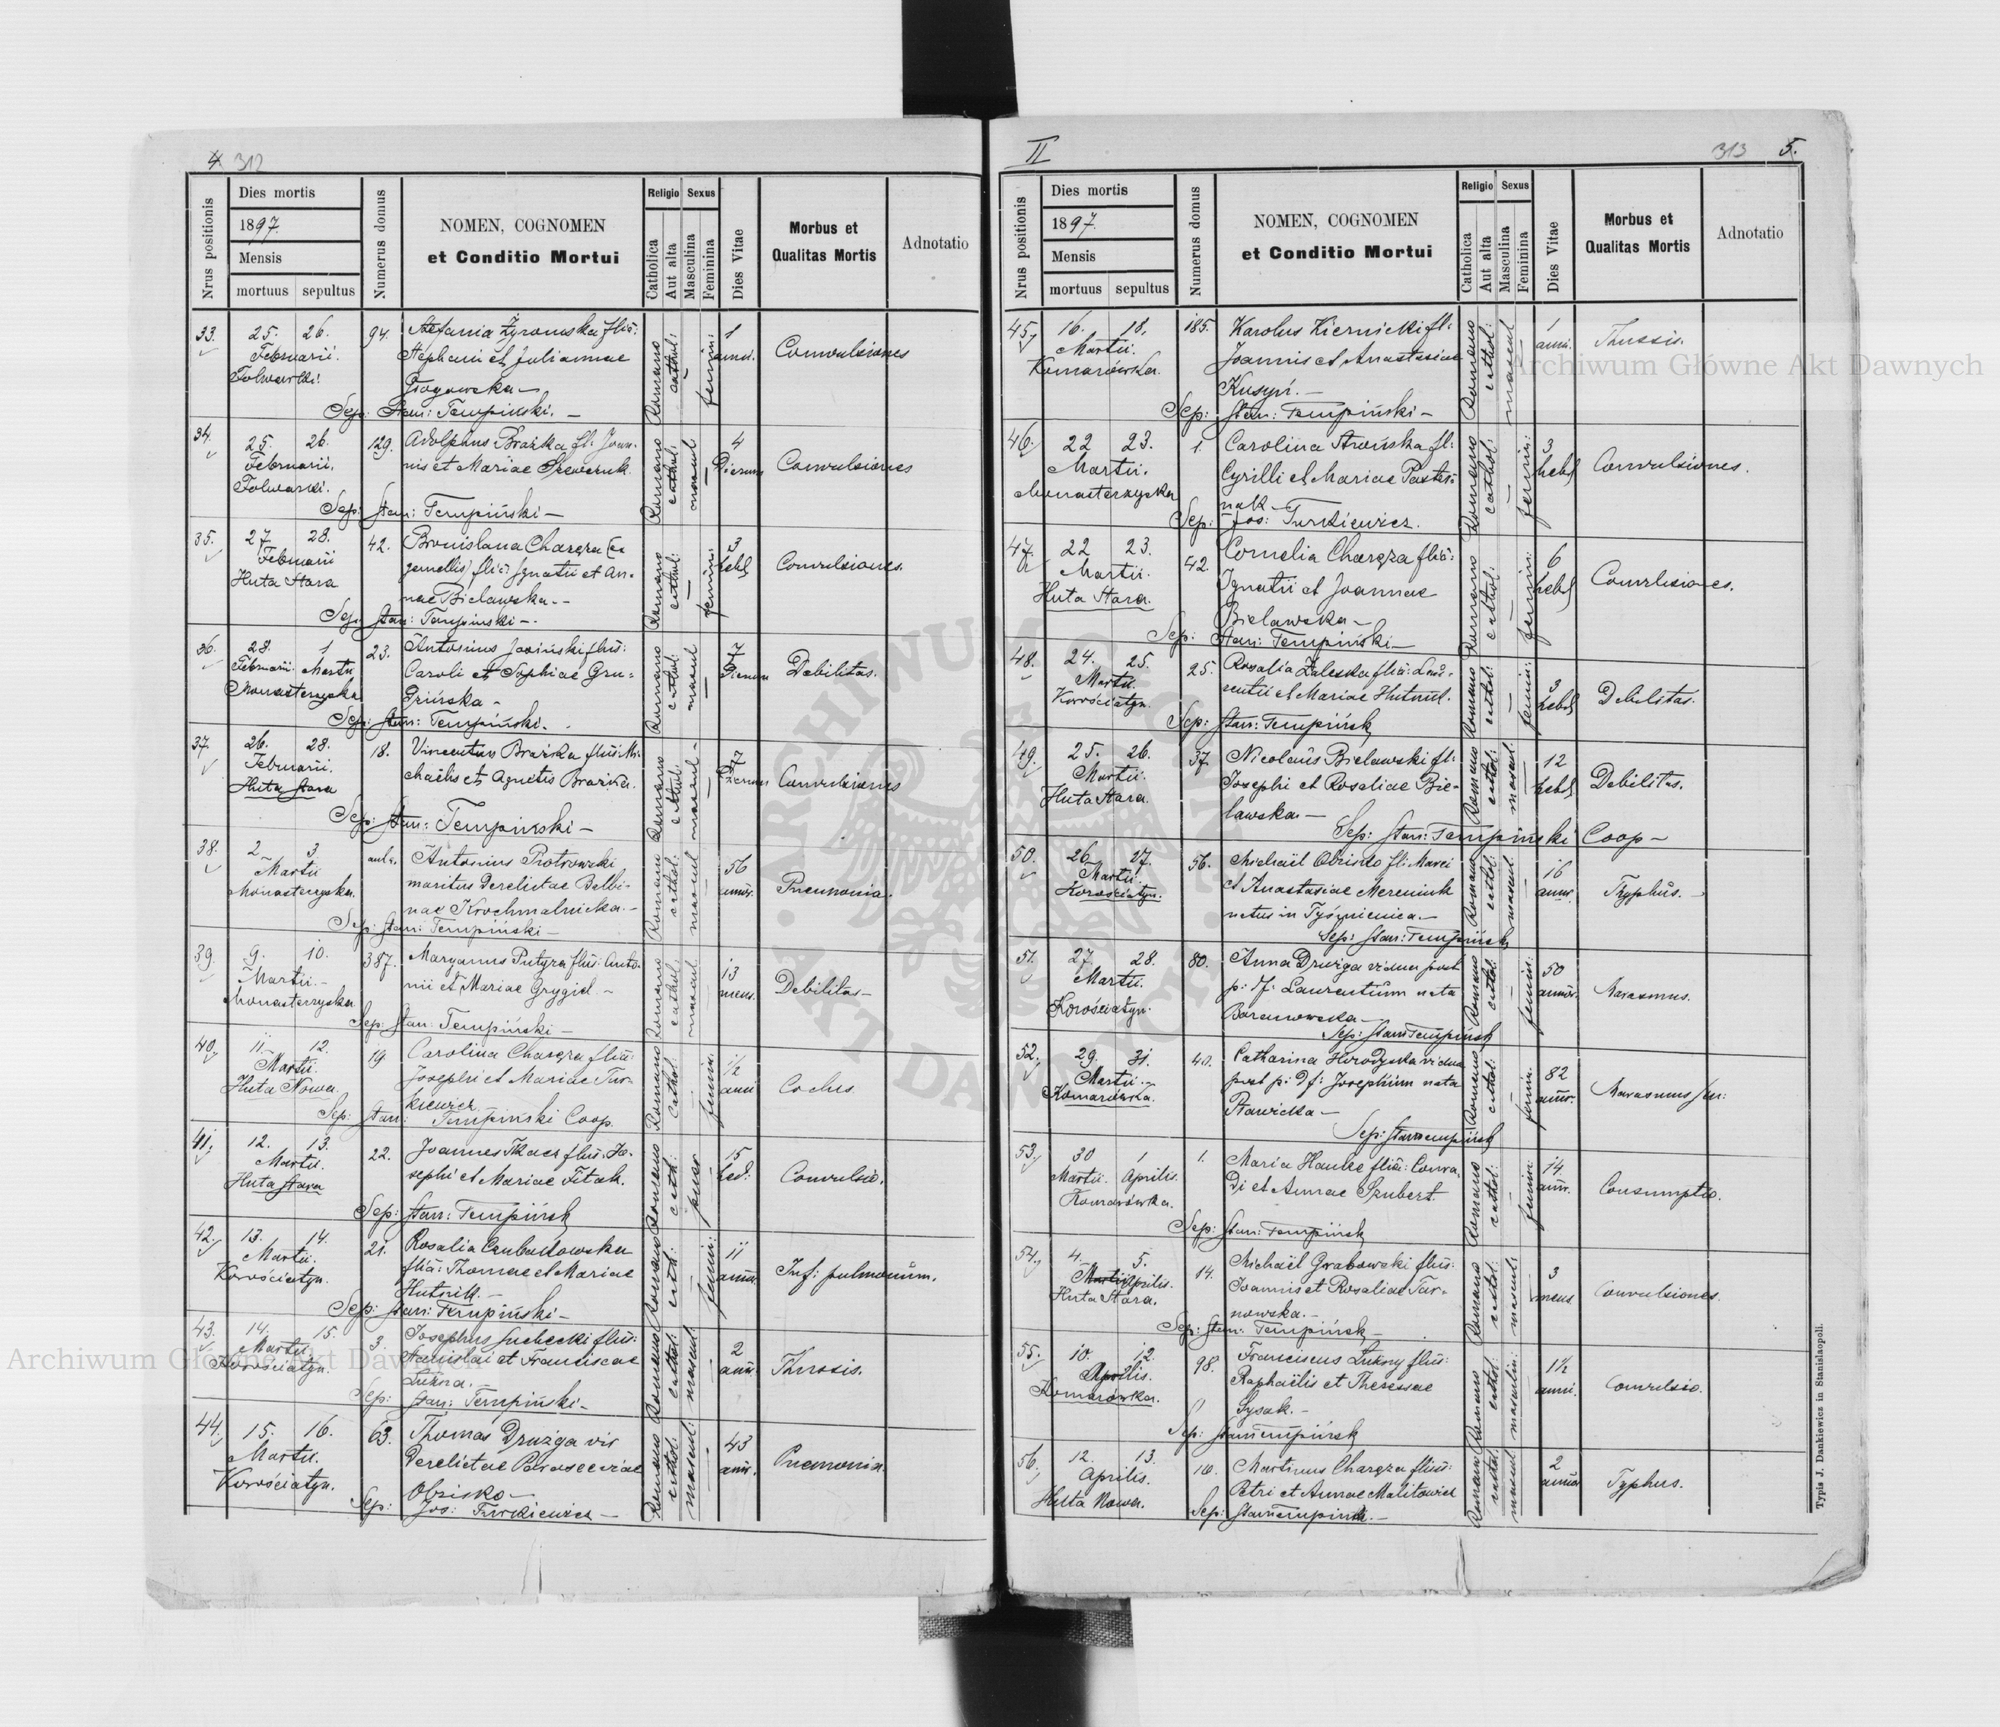 4 312
Nrus positionis
Dies mortis
1897.
Mensis
mortuus sepultus
Numerus domus
NOMEN, COGNOMEN
et Conditio Mortui
Religio
Catholica
Aut alta
Sexus
Masculina
Feminina
Dies Vitae
Morbus et
Qualitas Mortis
Adnotatio
33. 25. 26. 94. Stefania flia: 1
Februarii. Stephani et Juliannae anni. Convulsiones
Folwarki.
Romano cathol: femin:
Sep: Stan: Tempinski. –
34. 25. 26. 129. Adolphus Brażka fl: Joan- 4
Februarii. nis et Mariae Szewczuk Dierum Convulsiones
Folwarki.
Romano cathol: mascul
Sep: Stan: Tempiński –
35. 27. 28. 42. Bronislava Charęza (ex 3
Februarii gemellis) flia: Ignatii et An- hebd Convulsiones.
Huta Stara nae Bielawska. –
Romano cathol: femin:
Sep: Stan: Tempinski –.
36. 28. 1 23. Antonius Jasiński flius: 7
Februarii Martii Caroli et Sophiae Gru- Dierum Debilitas.
Monasterzyska dzińska –
Romano cathol: mascul
Sep: Stan: Tempiński. –
37. 26. 28. 18. Vincentius Brażka flius: Mi- 7
Februarii. chaelis et Agnetis Brażka. Dierum Convulsiones
Huta Stara
Romano cathol: mascul –
Sep: Stan: Tempinski –
38. 2 3 Antonius Piotrowski 56
Martii maritus Derelictae Balbi- annor. Pneumonia.
Monasterzyska. nae Krochmalnicka. –
Romano cathol: mascul
Sep: Stan: Tempiński –
39. 9. 10. 387. Maryanus Putyra flius: Anto- 13
Martii. – nii et Mariae Grygiel – mens. Debilitas –
Monasterzyska
Romano cathol: mascul
Sep: Stan: Tempiński –
40. 11. 12. 19 Carolina Charęza flia: 1/2
Martii. Josephi et Mariae Tur- anni
Huta Nowa. kiewicz
Romano cathol: femin:
Sep: Stan: Tempinski Coop.
41. 12. 13. 22. Joannes Tkacz flius: Jo- 15
Martii. sephi et Mariae Fitak. Convulsio.
Huta Stara
Romano cath:
Sep: Stan: Tempińsk
42. 13. 14. 21. Rosalia 11
Martii. flia: Thomae et Mariae annor Inf: pulmonum.
Korościatyn. Hutnik. –
Romano cath: femin:
Sep: Stan: Tempiński –
43. 14. 15. 3. Josephus Suchecki flius: 2
Martii. Stanislai et Franciscae ann. Thussis.
Korościatyn. Łukna. –
Romano cathol: mascul
Sep: Stan: Tempiński –
44. 15. 16. 63. Thomas Drużga vir 43
Martii. Derelictae Parascevae ann. Pneumonia.
Korościatyn. Obzisko –
Romano cathol: mascul:
Sep: Jos: Turkiewicz –
II 313 5.
Nrus positionis
Dies mortis
1897.
Mensis
mortuus sepultus
Numerus domus
NOMEN, COGNOMEN
et Conditio Mortui
Religio
Catholica
Aut alta
Sexus
Masculina
Feminina
Dies Vitae
Morbus et
Qualitas Mortis
Adnotatio
45. 16. 18. 185. Karolus Kiernicki fl: 1
Martii. Joannis et Anastasiae anni. Thussis.
Komarówka.
Romano cathol: mascul
Sep: Stan: Tempiński –
46. 22 23. 1. Carolina fl: 3
Martii. Cyrilli et Mariae Paster- hebd Convulsiones.
Monasterzyska nak –
Romano cathol: femin:
Sep: Jos: Turkiewicz.
47. 22 23. 42. Cornelia Charęza flia: 6
Martii. Ignatii et Joannae hebd Convlsiones.
Huta Stara. Bielawska –
Romano cathol: femin:
Sep: Stan: Tempiński –
48. 24. 25. 25. Rosalia Zaleska flia: Lau- 3
Martii. rentii et Mariae Hutnik. hebd Debilitas.
Korościatyn.
Romano cathol: femin:
Sep: Stan: Tempińsk
49. 25. 26. 37. Nicolaus Bielawski fl: 12
Martii. Josephi et Rosaliae Bie- hebd Debilitas.
Huta Stara. lawska. –
Romano cathol: mascul
Sep: Stan: Tempiński Coop –
50. 26. 27. 56. Michaël Obzisko fl: Marci 16
Martii. et Anastasiae annor. Thyphus. –
Korościatyn. natus in Tyśmienica. –
Romano cathol: mascul
Sep: Stan: Tempińsk
51. 27. 28. 80. Anna Drużga vidua post 50
Martii. p: Df: Laurentium nata annor. Marasmus.
Korościatyn. Baranowska –
Romano cathol: femin:
Sep: Stan: Tempińsk
52. 29. 31. 40. Catharina vidua 82
Martii. – post p: Df: Josephum nata annor. Marasmus sen:
Komarówka.
Romano cathol: femin:
Sep: Stan Tempińsk
53. 30 1 1. Maria Hanke flia: Conra- 14
Martii. Aprilis. di et Annae Szubert annr. Consumptio.
Komarówka.
Romano cathol: femin:
Sep: Stan: Tempińsk
54. 4. 5. 14. Michaël Grabowski flius: 3
Martii Aprilis. Joannis et Rosaliae Tar- mens Convulsiones.
Huta Stara. nowska. –
Romano cathol: mascul:
Sep: Stan: Tempińsk –
55. 10. 12. 98. Franciscus Łukny flius: 1 1/2
Aprilis. Raphaëlis et Theressae anni. Convulsio.
Komarówka. Sysak. –
Romano cathol: masculin:
Sep: Stan Tempińsk
56. 12. 13. 10. Martinus Charęza flius: 2
Aprilis. Petri et Annae Malitowicz annor Typhus.
Huta Nowa.
Romano cathol: mascul
Sep: Stan Tempinsk. –
Typis J. Dankiewicz in Stanislaopoli.
Archiwum Główne Akt Dawnych
Archiwum Główne Akt Dawnych
ARCHIWUM GŁÓWNE
AKT DAWNYCH